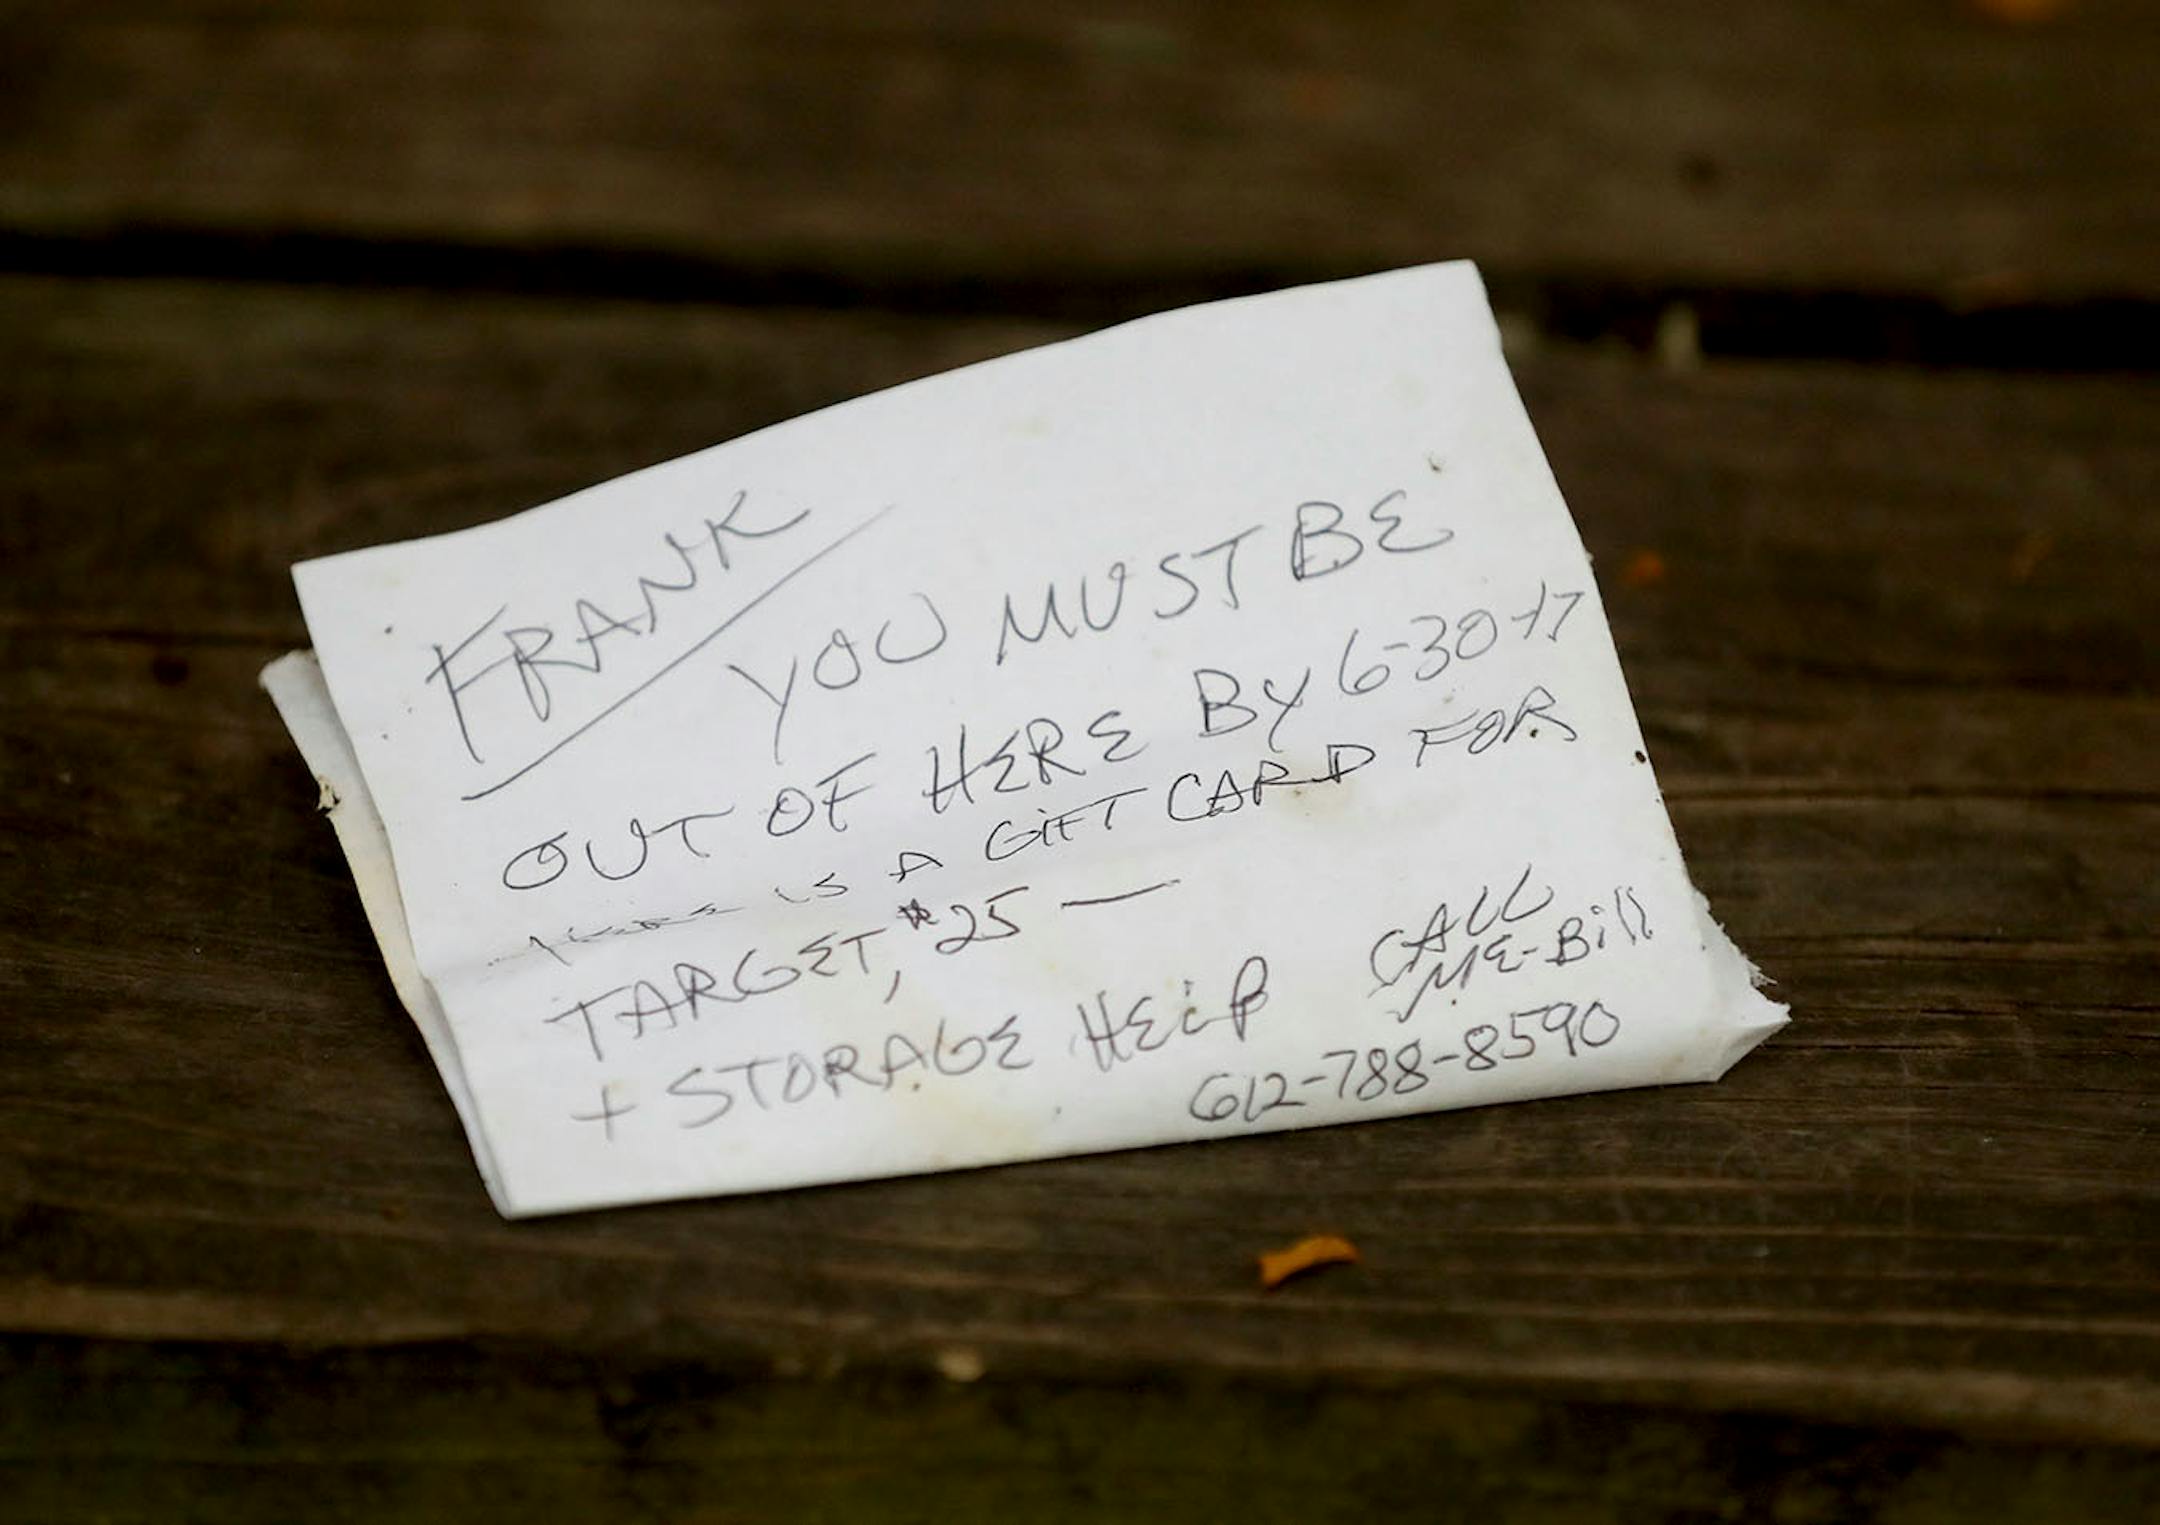 FRANK
YOU MUST BE
OUT OF HERE BY 6-30-17
HERE IS A GIFT CARD FOR
TARGET, $25 —
+ STORAGE HELP
CALL
ME-Bill
612-788-8590